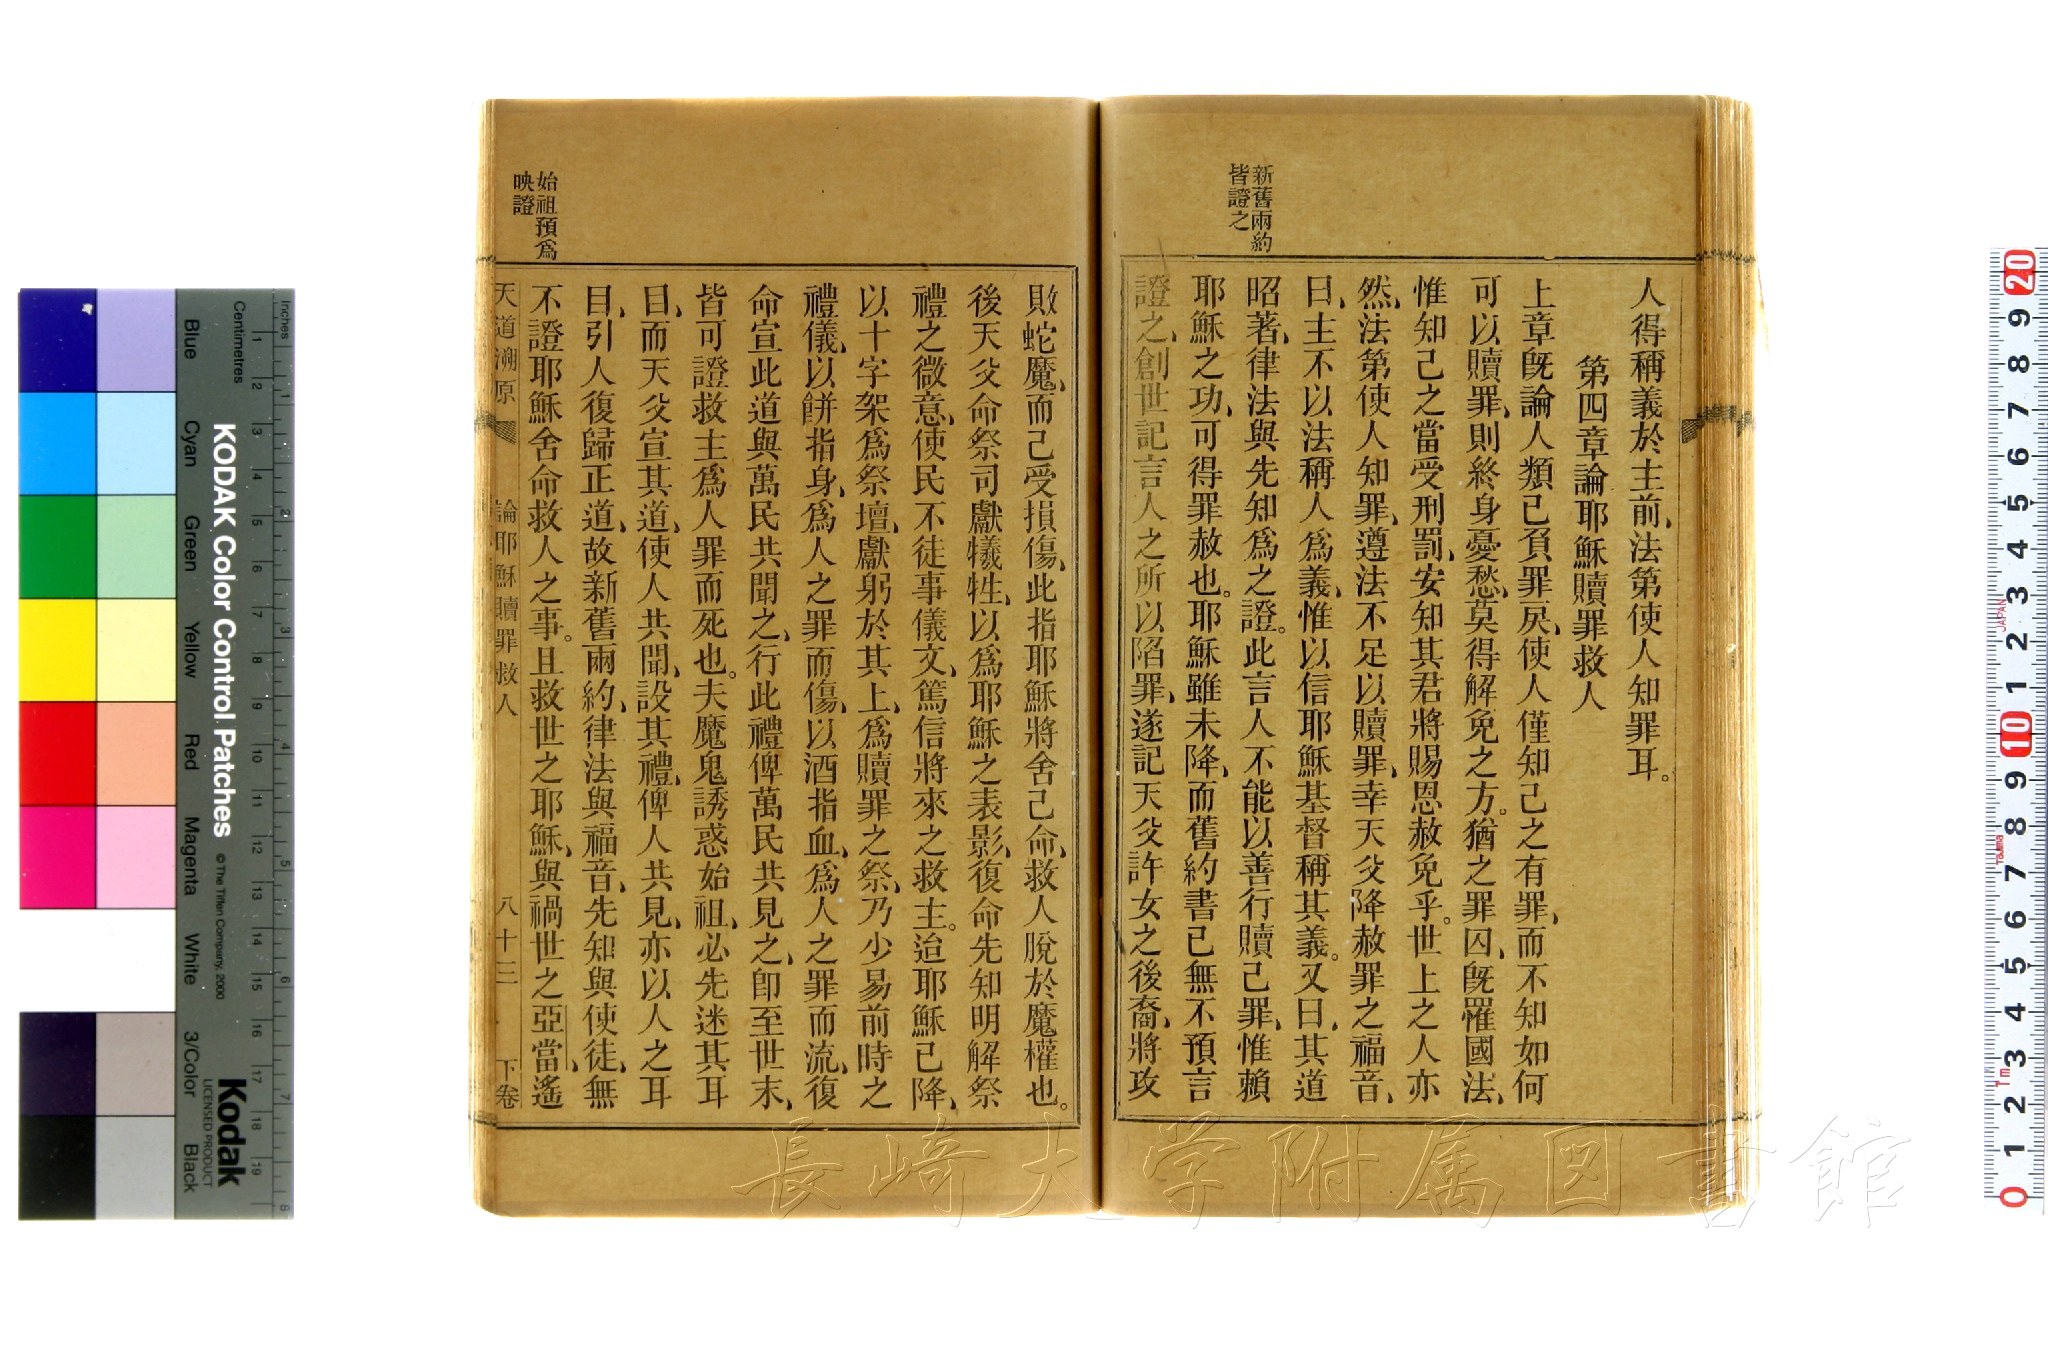 新舊兩約
皆證之
人得稱義於主前、法第使人知罪耳。
第四章論耶穌贖罪救人
上章旣論人類己負罪戾、使人僅知己之有罪、而不知如何
可以贖罪、則終身憂愁、莫得解免之方。猶之罪囚、旣罹國法、
惟知己之當受刑罰、安知其君將賜恩赦免乎。世上之人亦
然、法第使人知罪、遵法不足以贖罪、幸天父降赦罪之福音、
曰、主不以法稱人爲義、惟以信耶穌基督稱其義。又曰、其道
昭著、律法與先知爲之證。此言人不能以善行贖己罪、惟賴
耶穌之功、可得罪赦也。耶穌雖未降、而舊約書已無不預言
證之、創世記言人之所以陷罪、遂記天父許女之後裔、將攻
始祖預爲
映證
敗蛇魔、而己受損傷、此指耶穌將舍己命、救人脫於魔權也。
後天父命祭司獻犧牲、以爲耶穌之表影、復命先知明解祭
禮之微意、使民不徒事儀文、篤信將來之救主。迨耶穌已降、
以十字架爲祭壇、獻躬於其上、爲贖罪之祭、乃少易前時之
禮儀、以餅指身、爲人之罪而傷、以酒指血、爲人之罪而流、復
命宣此道與萬民共聞之、行此禮俾萬民共見之、卽至世末、
皆可證救主爲人罪而死也。夫魔鬼誘惑始祖、必先迷其耳
目、而天父宣其道、使人共聞、設其禮、俾人共見、亦以人之耳
目、引人復歸正道、故新舊兩約、律法與福音、先知與使徒、無
不證耶穌舍命救人之事。且救世之耶穌、與禍世之亞當、遙
天道溯原 論耶穌贖罪救人 八十三 下卷
長崎大学附属図書館
KODAK Color Control Patches
©The Tiffen Company, 2000
Kodak
LICENSED PRODUCT
Inches
Centimetres
1 2 3 4 5 6 7 8 9 10 11 12 13 14 15 16 17 18 19
1 2 3 4 5 6 7 8
Blue
Cyan
Green
Yellow
Red
Magenta
White
3/Color
Black
20 9 8 7 6 5 4 3 2 1 10 9 8 7 6 5 4 3 2 1 0
JAPAN